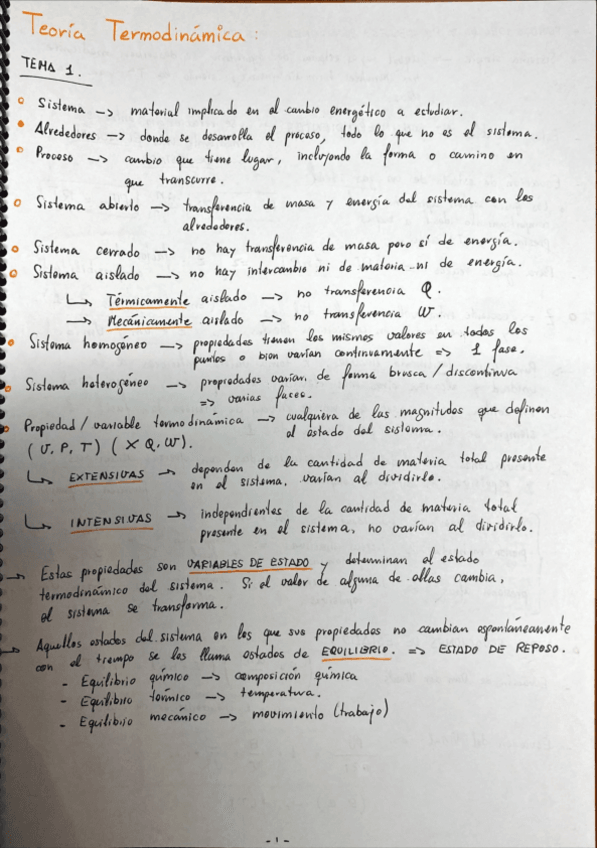 Teoría Termodinámica:
TEMA 1.
Sistema -> material implicado en el cambio energético a estudiar.
Alrededores -> donde se desarrolla el proceso, todo lo que no es el sistema.
Proceso -> cambio que tiene lugar, incluyendo la forma o camino en
que transcurre.
Sistema abierto -> transferencia de masa y energía del sistema con los
alrededores.
Sistema cerrado -> no hay transferencia de masa pero sí de energía.
Sistema aislado -> no hay intercambio ni de materia ni de energía.
↳ Térmicamente aislado -> no transferencia Q.
-> Mecánicamente aislado -> no transferencia W.
Sistema homogéneo -> propiedades tienen los mismos valores en todos los
puntos o bien varían continuamente => 1 fase.
Sistema heterogéneo -> propiedades varían de forma brusca / discontinua
=> varias fases.
Propiedad / variable termodinámica -> cualquiera de las magnitudes que definen
el estado del sistema.
(U, P, T) (X Q, W).
↳ EXTENSIVAS -> dependen de la cantidad de materia total presente
en el sistema, varían al dividirlo.
↳ INTENSIVAS -> independientes de la cantidad de materia total
presente en el sistema, no varían al dividirlo.
-> Estas propiedades son VARIABLES DE ESTADO y determinan el estado
termodinámico del sistema. Si el valor de alguna de ellas cambia,
el sistema se transforma.
-> Aquellos estados del sistema en los que sus propiedades no cambian espontáneamente
con el tiempo se les llama estados de EQUILIBRIO. => ESTADO DE REPOSO.
- Equilibrio químico -> composición química
- Equilibrio térmico -> temperatura.
- Equilibrio mecánico -> movimiento (trabajo)
- 1 -